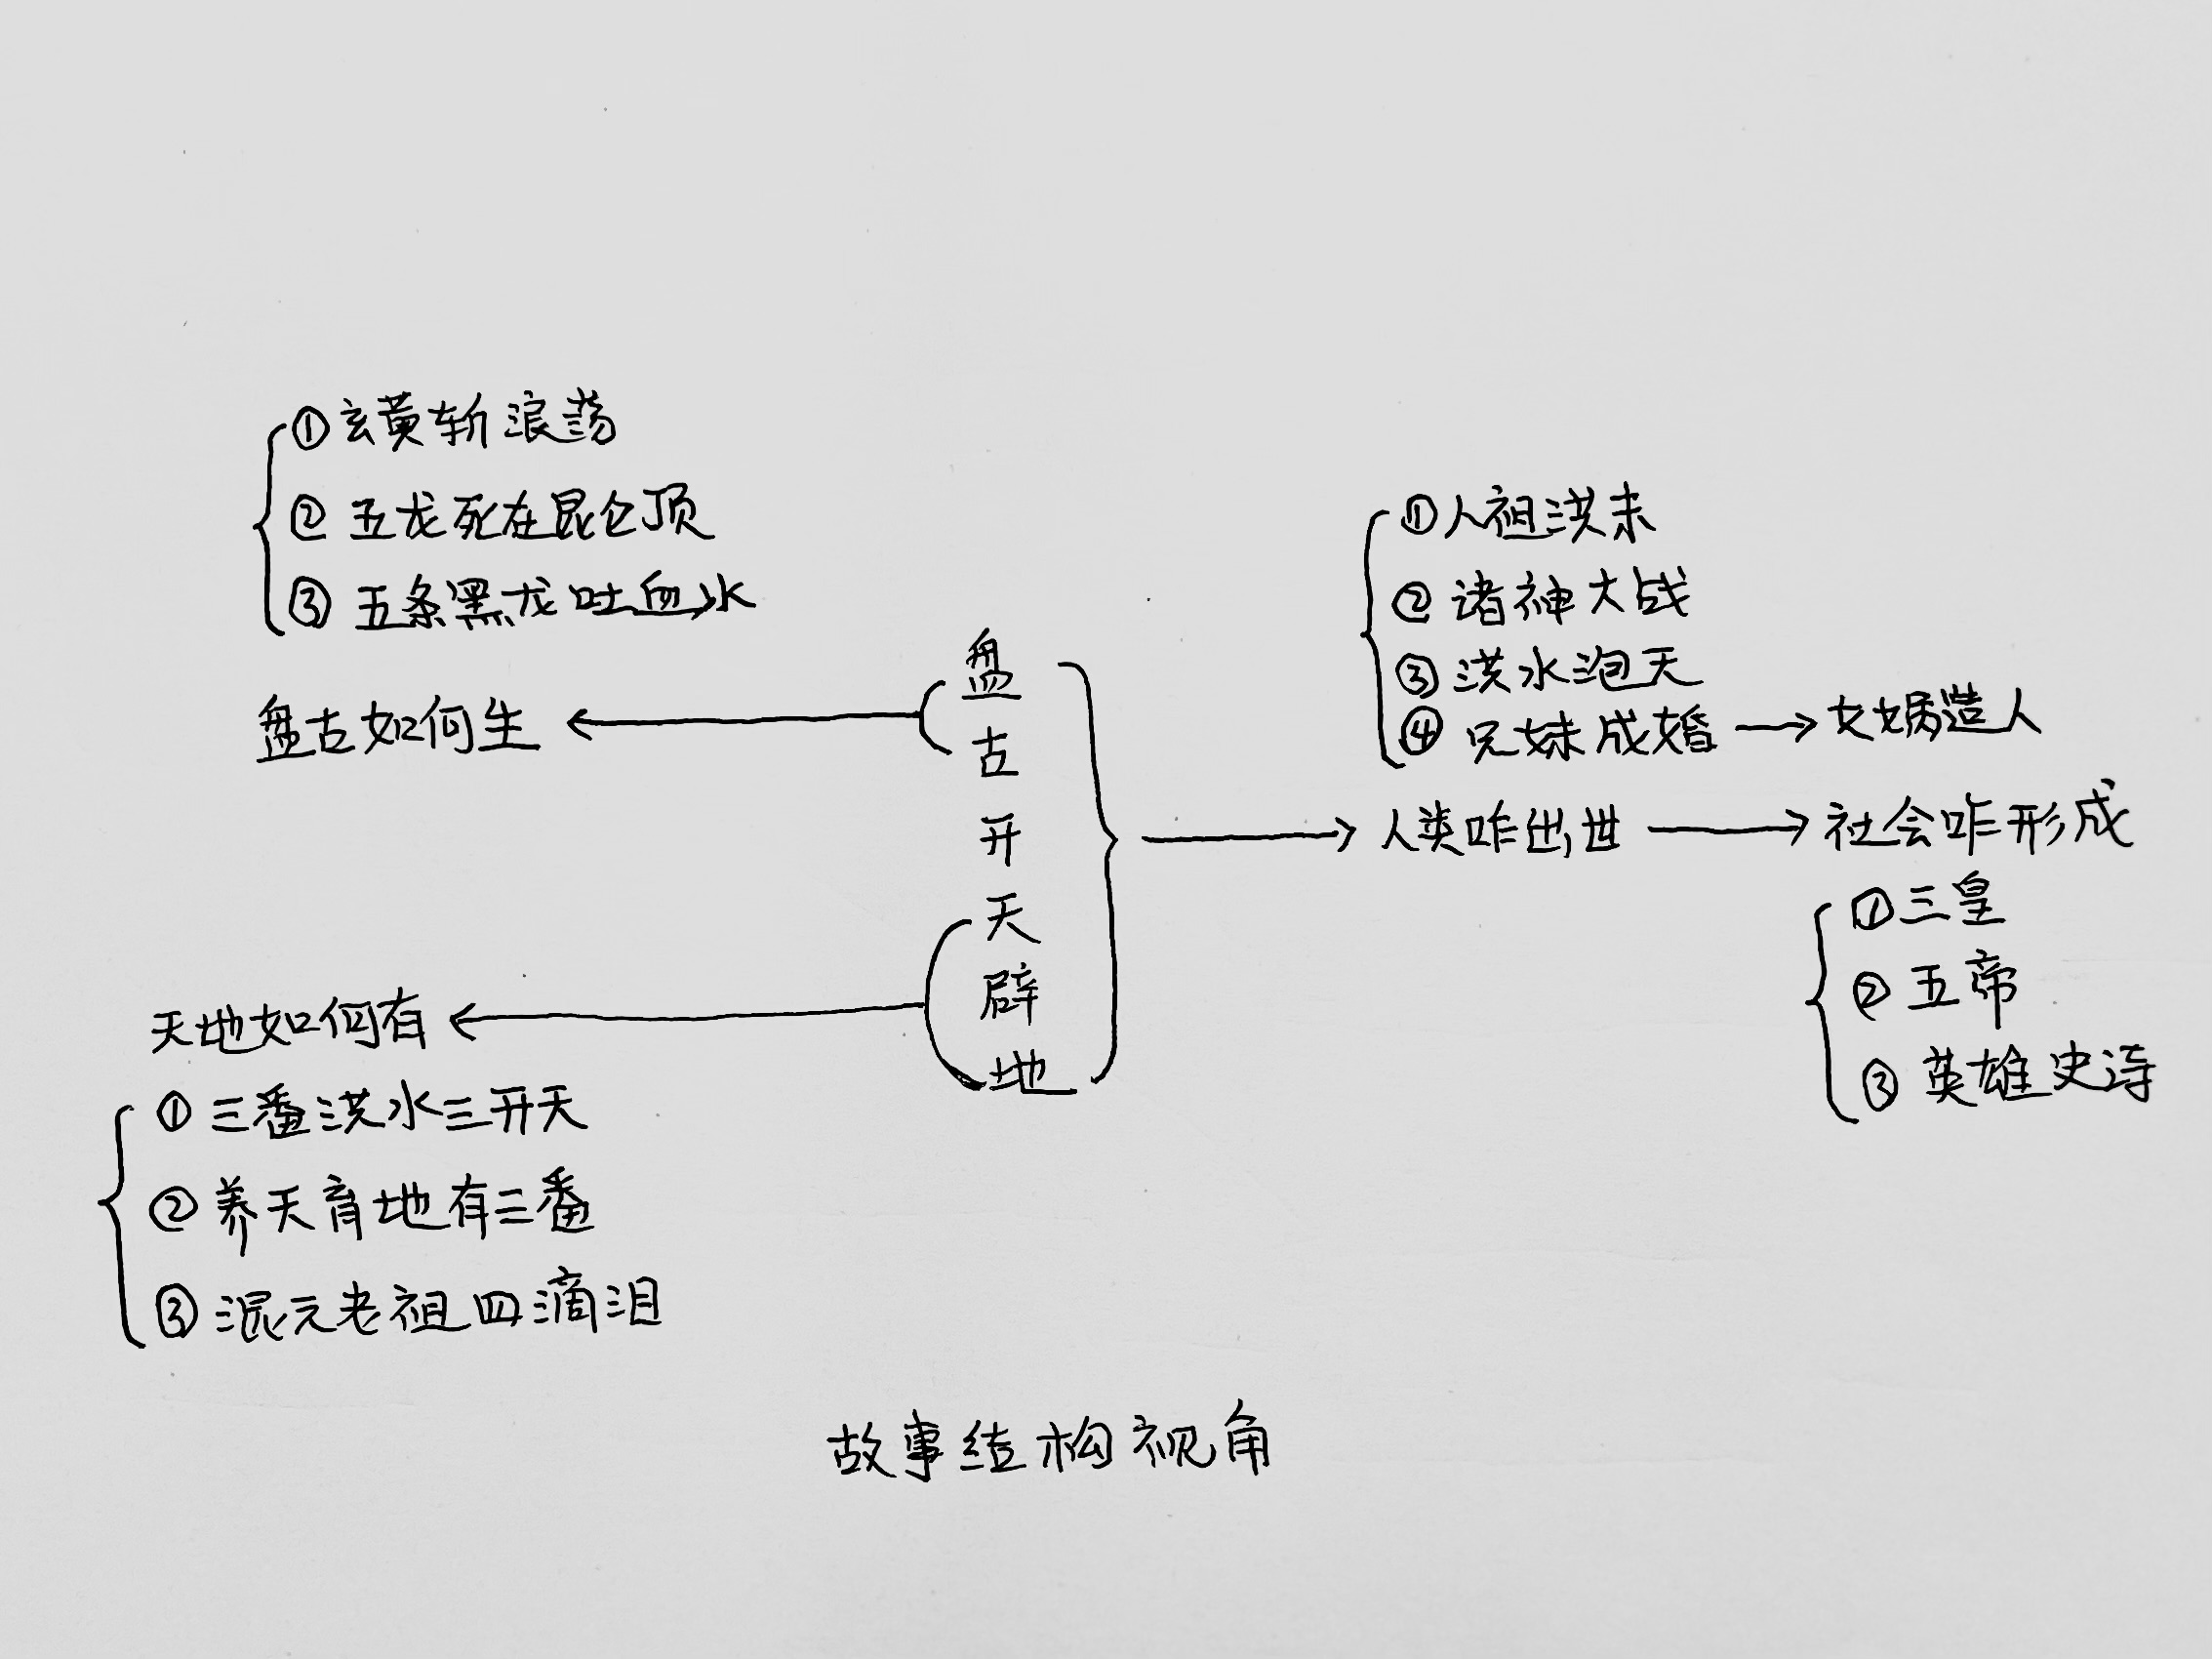 ①玄黄斩浪荡
②五龙死在昆仑顶
③五条黑龙吐血水
盘古如何生
盘古开天辟地
天地如何有
①三番洪水三开天
②养天育地有三番
③混元老祖四滴泪
①人祖洪末
②诸神大战
③洪水泡天
④兄妹成婚→女娲造人
人类咋出世→社会咋形成
①三皇
②五帝
③英雄史诗
故事结构视角